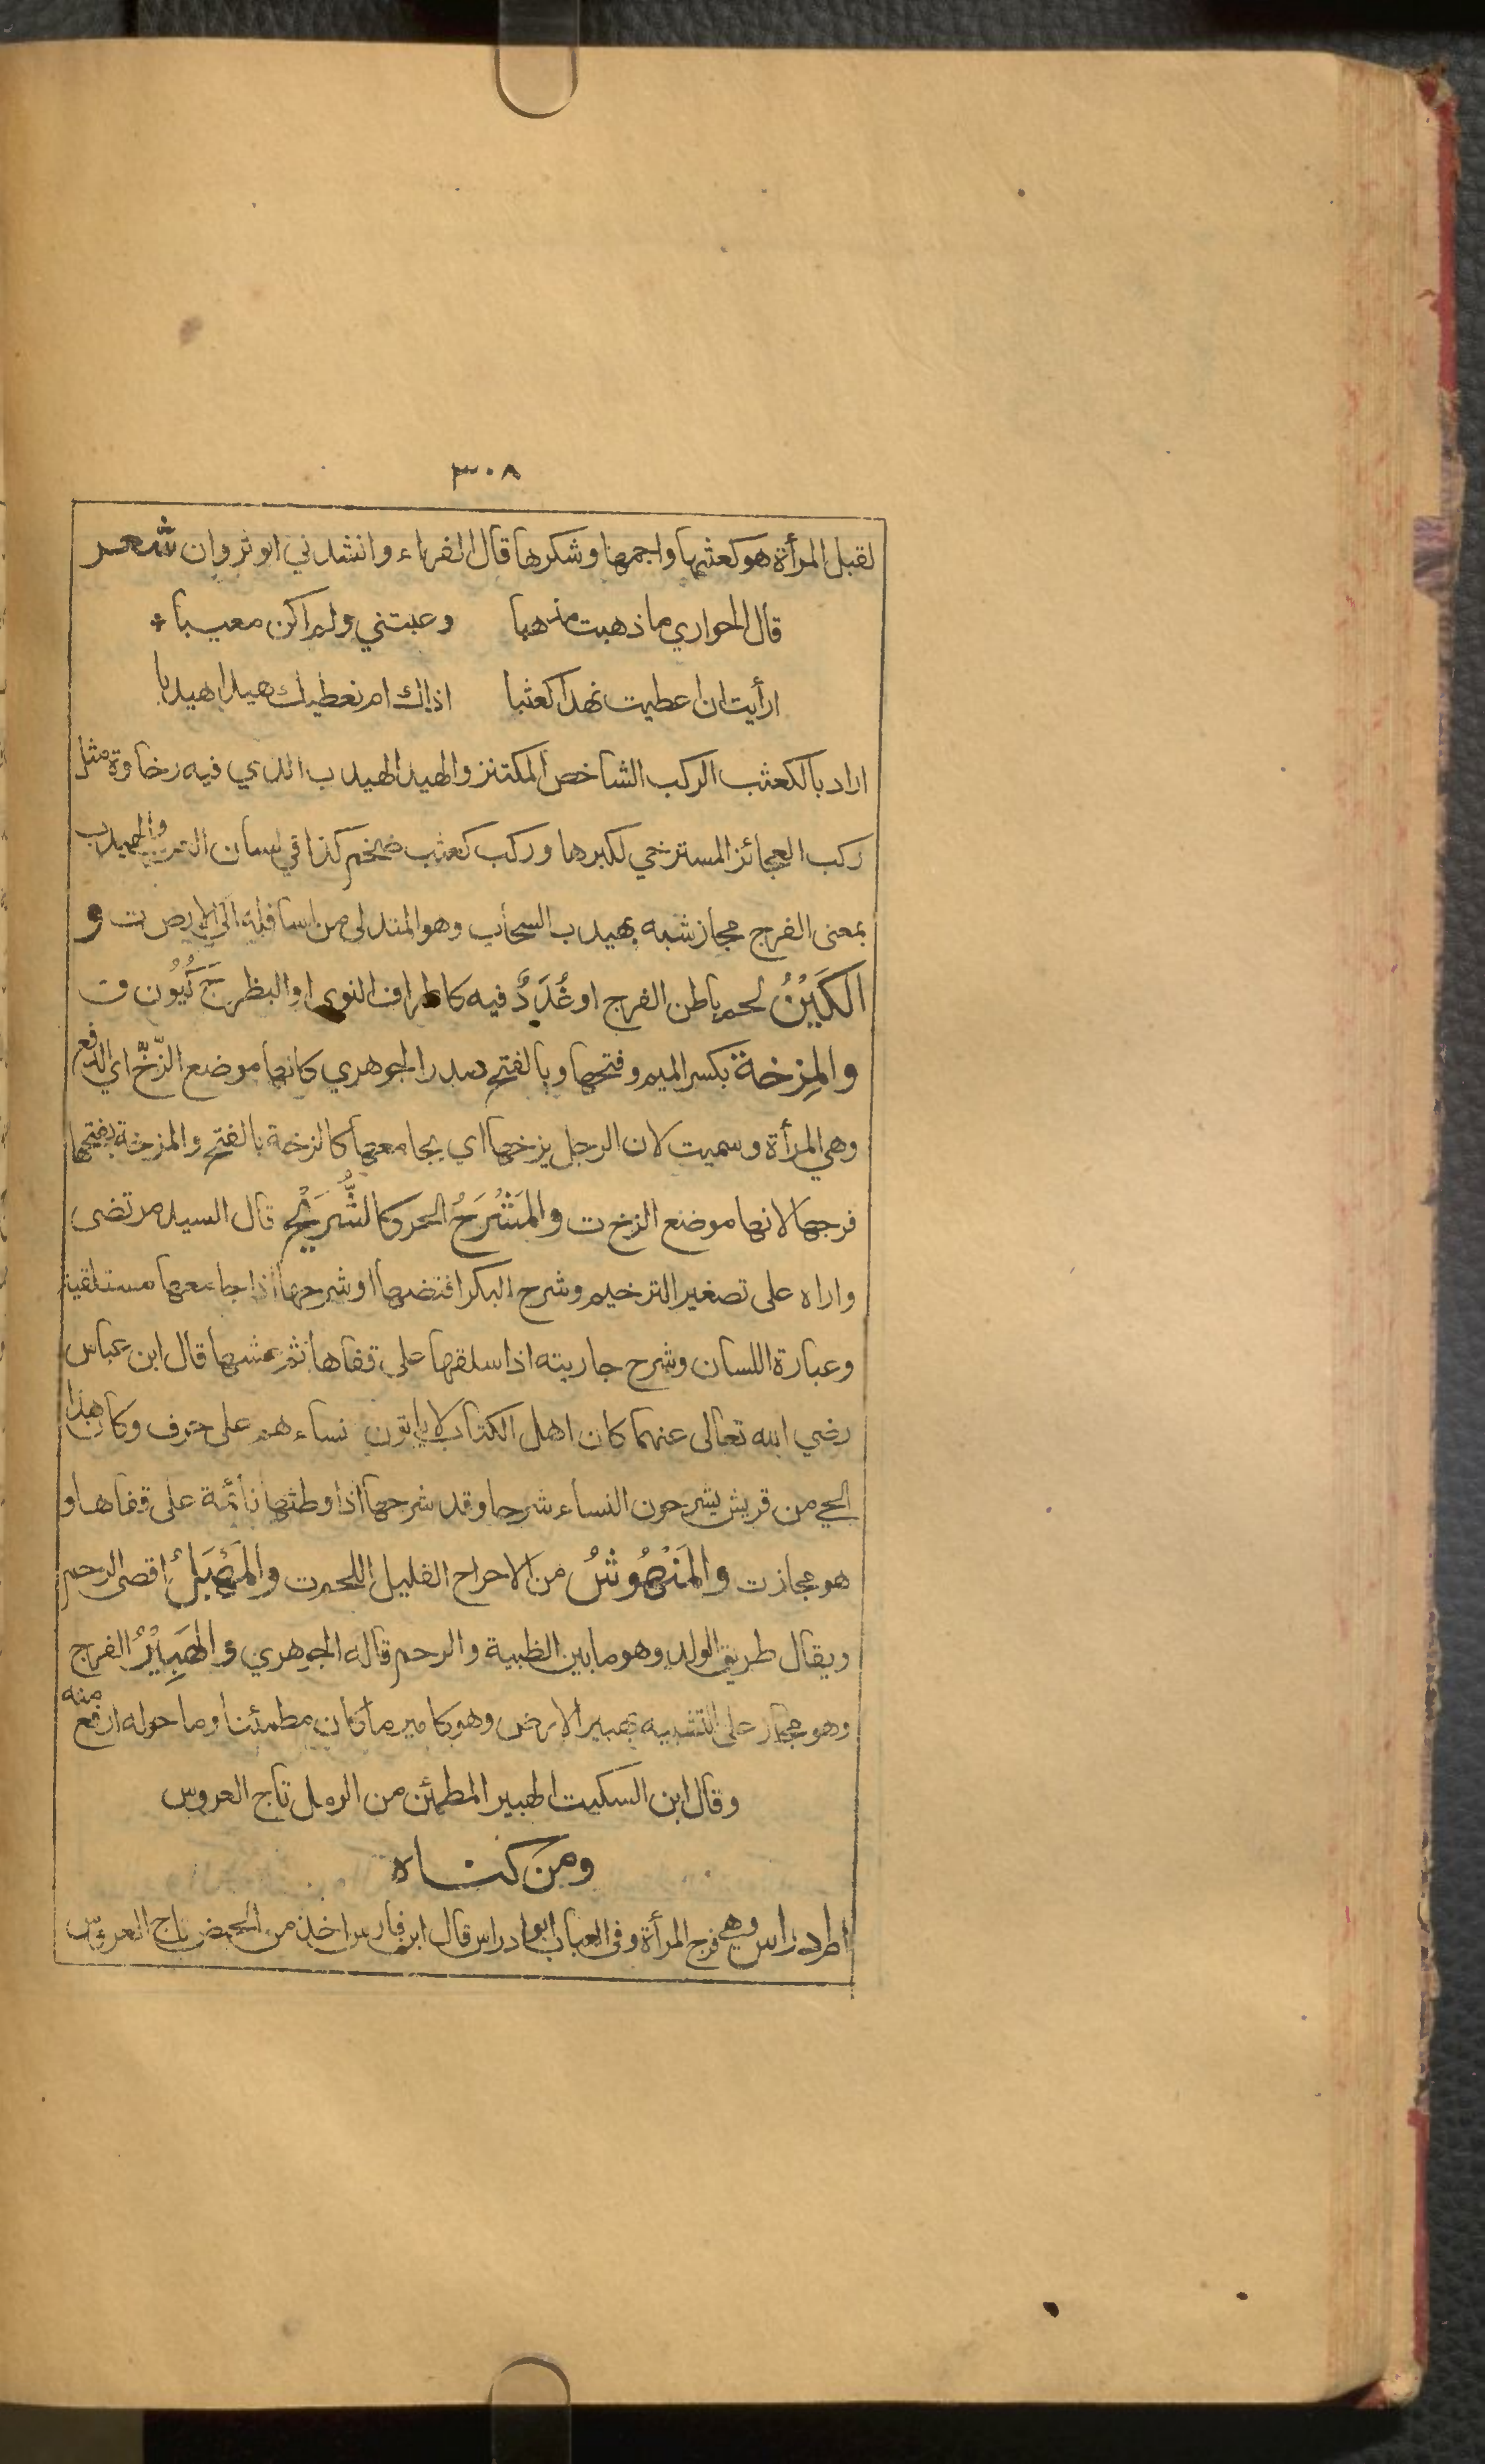 ٣٠٨
لقبل المرأة هو كعثبها واجمها وشكرها قال الفراء وانشدني ابو ثروان شعر
قال الجواري ما ذهبت مذهبا وعبتني ولم اكن معيبا *
ارأيت ان اعطيت نهدا كعثبا اذاك ام نعطيك هيدا هيدبا
اراد بالكعثب الركب الشاخص المكتنز والهيد الهيدب الذي فيه رخاوة مثل
ركب العجائز المسترخي لكبرها وركب كعثب ضخم كذا في لسان العرب والهيدب
بمعنى الفرج مجاز شبه بهيدب السحاب وهو المتدلى من اسافله الى الارض ت و
الكَيْنُ لحم باطن الفرج او غُدَدٌ فيه كاطراف النوى او البظر ج كُيُون ق ت
والمِزخة بكسر الميم وفتحها وبالفتح صدر الجوهري كانها موضع الزَّخّ اي الدفع
وهي المرأة وسميت لان الرجل يزخها اي يجامعها كالزخة بالفتح والمزخة بفتحها
فرجها لانها موضع الزخ ت والمَشْرَحُ الحر كالشُّرَيْح قال السيد مرتضى
واراه على تصغير الترخيم وشرح البكر افتضها او شرحها اذا جامعها مستلقية
وعبارة اللسان وشرح جاريته اذا سلقها على قفاها ثم غشيها قال ابن عباس
رضي الله تعالى عنهما كان اهل الكتاب لا ياتون نساءهم على حرف وكان هذا
الحي من قريش يشرحون النساء شرحا وقد شرحها اذا وطئها نائمة على قفاها و
هو مجاز ت والمَنْهُوشُ من الاحراح القليل اللحم ت والمَهْبَلُ اقصى الرحم
ويقال طريق الولد وهو ما بين الظبية والرحم قاله الجوهري والهَبِيْرُ الفرج
وهو مجاز على التشبيه بهبير الارض وهو كامير ما كان مطمئنا وما حوله ارفع منه
وقال ابن السكيت الهبير المطمئن من الرمل تاج العروس
ومن كناه
ادراس وهي فرج المرأة وفى العباب ابو ادراس قال ابن فارس اخذ من الحيض تاج العروس